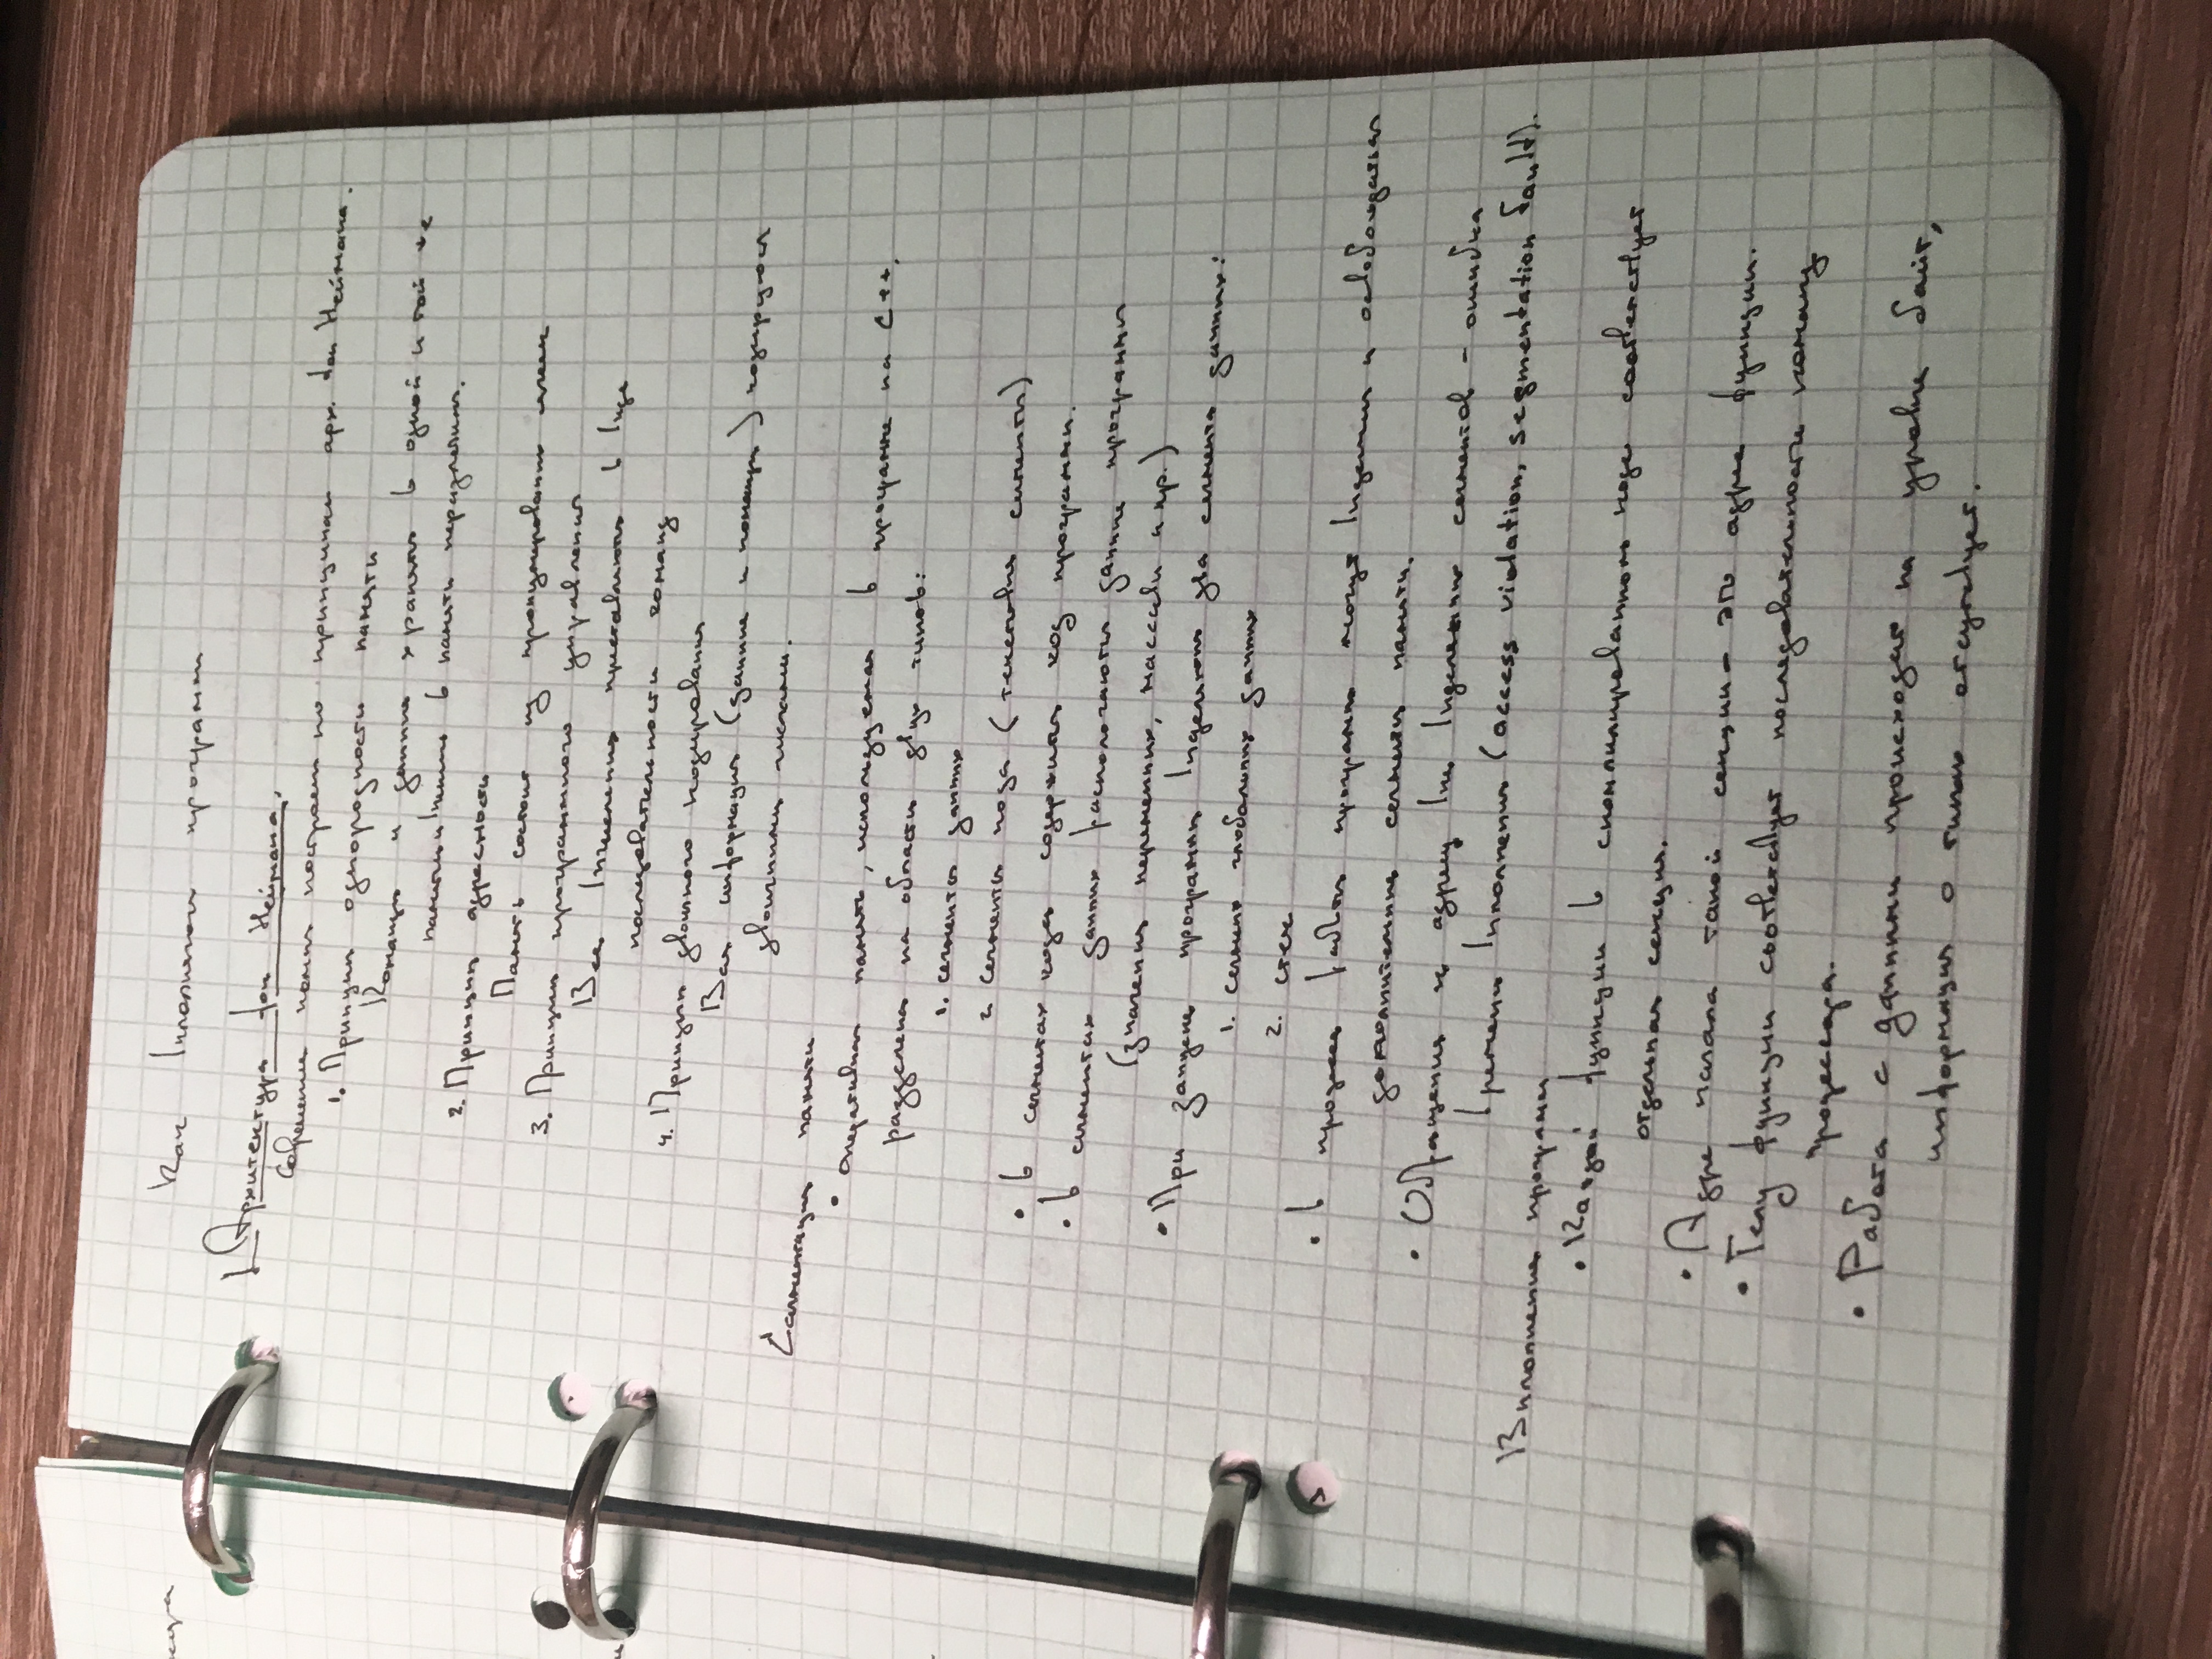 Как выполняются программы
Архитектура фон Неймана.
Современные компы построены по принципам арх. фон Неймана.
1. Принцип однородности памяти
Команды и данные хранятся в одной и той же
памяти и внешне в памяти неразличимы.
2. Принцип адресности
Память состоит из пронумерованных ячеек
3. Принцип программного управления
Все вычисления представляются в виде
последовательности команд
4. Принцип двоичного кодирования
Вся информация (данные и команды) кодируются
двоичными числами.
Сегментация памяти
• оперативная память, используемая в программе на C++,
разделена на области двух типов:
1. сегменты данных
2. сегменты кода (текстовые сегменты)
• в сегментах кода содержится код программы.
• в сегментах данных располагаются данные программы
(значения переменных, массивы и пр.)
• При запуске программы выделяются два сегмента данных:
1. сегмент глобальных данных
2. стек
• в процессе работы программы могут выделяться и освобождаться
дополнительные сегменты памяти.
• Обращения к адресу вне выделенных сегментов - ошибка
времени выполнения (access violation, segmentation fault).
Выполнение программы
• Каждой функции в скомпилированном коде соответствует
отдельная секция.
• Адрес начала такой секции - это адрес функции.
• Телу функции соответствует последовательности команд
процессора.
• Работа с данными происходит на уровне байт,
информация о типах отсутствует.